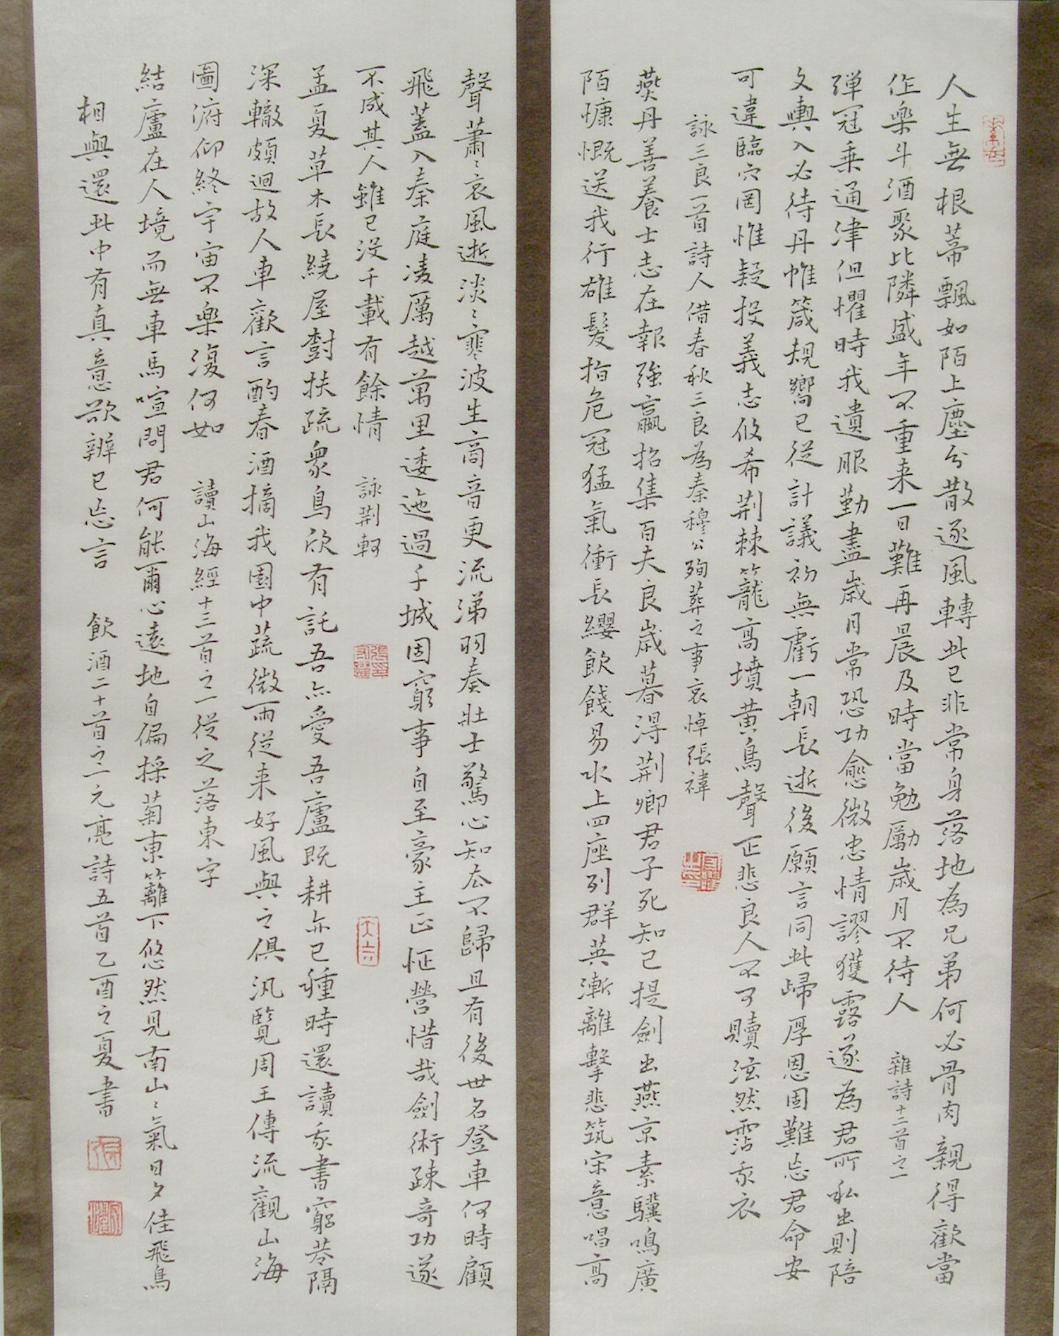 人生無根蒂飄如陌上塵分散逐風轉此已非常身落地為兄弟何必骨肉親得歡當
作樂斗酒聚比隣盛年不重来一日難再晨及時當勉勵歲月不待人 雜詩十二首之一
弾冠乗通津但懼時我遺服勤盡歲月常恐功愈微忠情謬獲露遂為君所私出則陪
文輿入必待丹帷箴規嚮已從計議初無虧一朝長逝後願言同此歸厚恩固難忘君命安
可違臨穴罔惟疑投義志攸希荆棘籠高墳黄鳥聲正悲良人不可贖泫然霑我衣
詠三良一首詩人借春秋三良為秦穆公殉葬之事哀悼張禕
燕丹善養士志在報強嬴招集百夫良歲暮得荆卿君子死知己提劍出燕京素驥鳴廣
陌慷慨送我行雄髮指危冠猛氣衝長纓飲餞易水上四座列群英漸離擊悲筑宋意唱高
聲蕭〻哀風逝淡〻寒波生商音更流涕羽奏壯士驚心知去不歸且有後世名登車何時顧
飛蓋入秦庭凌厲越萬里逶迤過千城圖窮事自至豪主正怔營惜哉劍術疎奇功遂
不成其人雖已没千載有餘情 詠荆軻
孟夏草木長繞屋樹扶疏衆鳥欣有託吾亦愛吾廬既耕亦已種時還讀我書窮巷隔
深轍頗迴故人車歡言酌春酒摘我園中蔬微雨從東来好風與之俱汎覽周王傳流觀山海
圖俯仰終宇宙不樂復何如 讀山海經十三首之一從之落東字
結廬在人境而無車馬喧問君何能爾心遠地自偏採菊東籬下悠然見南山〻氣日夕佳飛鳥
相與還此中有真意欲辨已忘言 飲酒二十首之一元亮詩五首乙酉之夏書